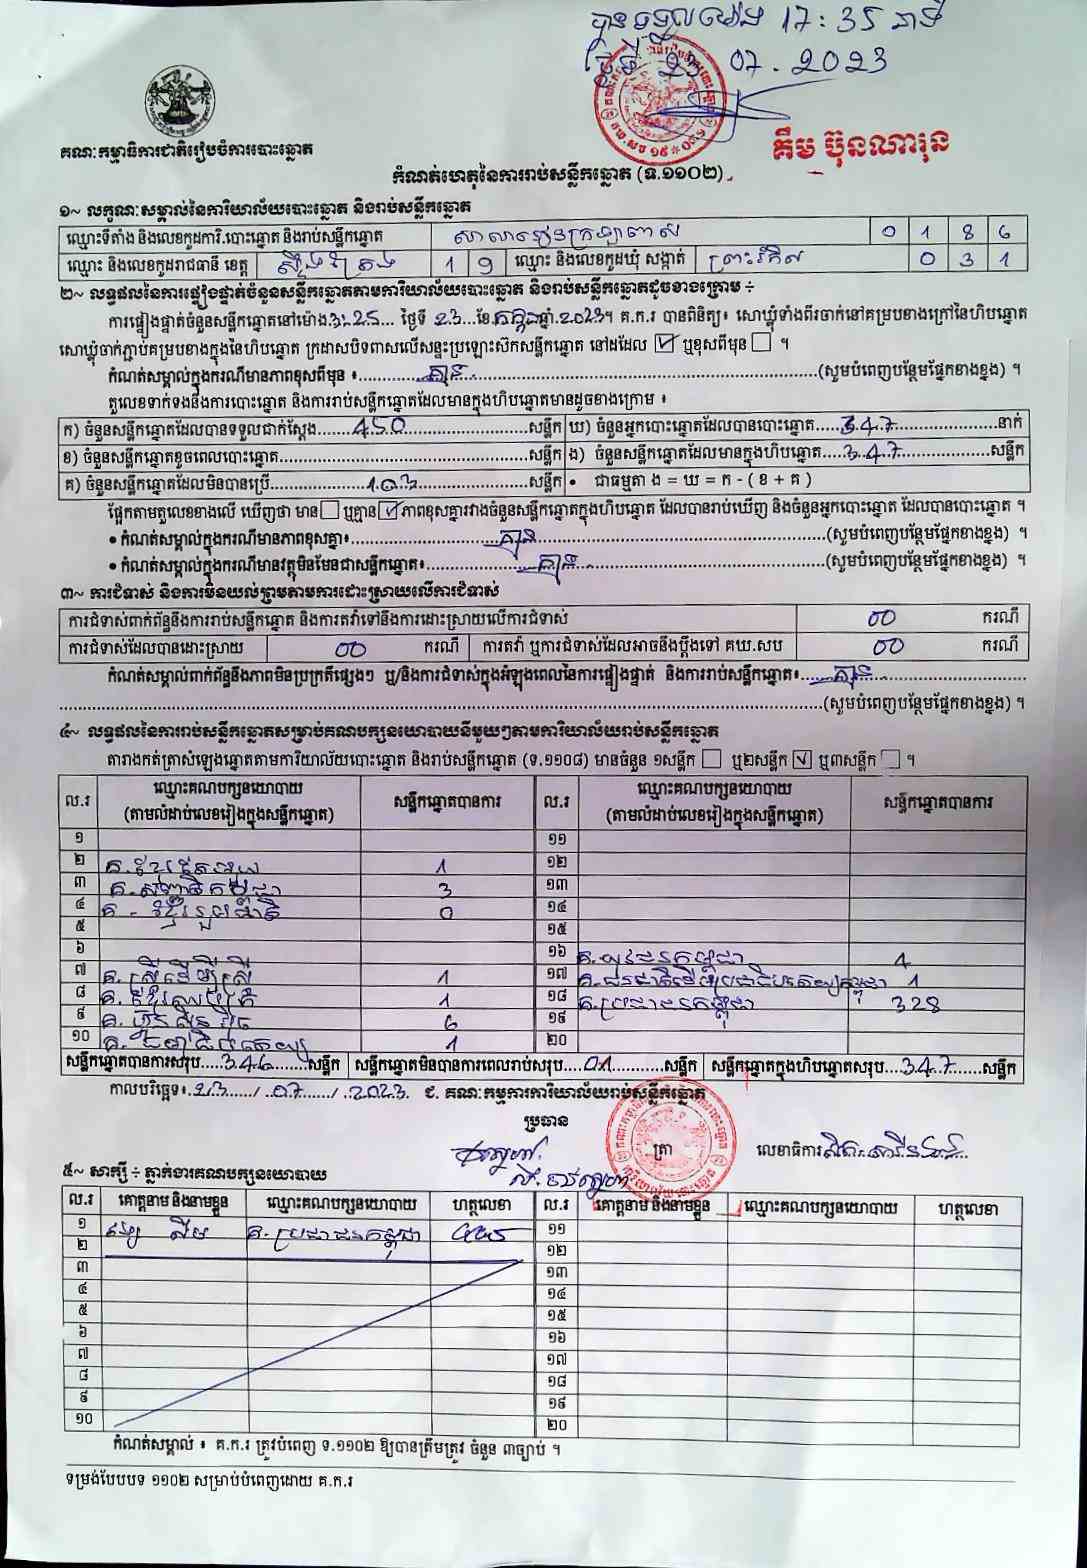 បានទទួលម៉ោង 17:35 នាទី
ថ្ងៃទី 23 07.2023
គឹម ប៊ុនណារុន
គណៈកម្មាធិការជាតិរៀបចំការបោះឆ្នោត
កំណត់ហេតុនៃការរាប់សន្លឹកឆ្នោត (ទ.១១០២)
១~ លក្ខណៈសម្គាល់នៃការិយាល័យបោះឆ្នោត និងរាប់សន្លឹកឆ្នោត
ឈ្មោះទីតាំង និងលេខកូដការិ.បោះឆ្នោត និងរាប់សន្លឹកឆ្នោត សាលារៀន 0 1 8 6
ឈ្មោះ និងលេខកូដរាជធានី ខេត្ត ស្ទឹងត្រែង 1 9 ឈ្មោះ និងលេខកូដឃុំ សង្កាត់ 0 3 1
២~ លទ្ធផលនៃការផ្ទៀងផ្ទាត់ចំនួនសន្លឹកឆ្នោតតាមការិយាល័យបោះឆ្នោត និងរាប់សន្លឹកឆ្នោតដូចខាងក្រោម ÷
ការផ្ទៀងផ្ទាត់ចំនួនសន្លឹកឆ្នោតនៅម៉ោង 3:25 ថ្ងៃទី 23 ខែ កក្កដា ឆ្នាំ 2023។ គ.ក.រ បានពិនិត្យ៖ សោឃ្លុំទាំងពីរចាក់នៅគម្របខាងក្រៅនៃហិបឆ្នោត
សោឃ្លុំចាក់ភ្ជាប់គម្របខាងក្នុងនៃហិបឆ្នោត ក្រដាសបិទពាសលើសន្ទះប្រឡោះសិកសន្លឹកឆ្នោត នៅដដែល ☑ ឬខុសពីមុន ☐ ។
កំណត់សម្គាល់ក្នុងករណីមានភាពខុសពីមុន ៖ គ្មាន (សូមបំពេញបន្ថែមផ្នែកខាងខ្នង) ។
តួលេខទាក់ទងនឹងការបោះឆ្នោត និងការរាប់សន្លឹកឆ្នោតដែលមានក្នុងហិបឆ្នោតមានដូចខាងក្រោម ៖
ក) ចំនួនសន្លឹកឆ្នោតដែលបានទទួលជាក់ស្តែង 450 សន្លឹក ឃ) ចំនួនអ្នកបោះឆ្នោតដែលបានបោះឆ្នោត 347 នាក់
ខ) ចំនួនសន្លឹកឆ្នោតខូចពេលបោះឆ្នោត សន្លឹក ង) ចំនួនសន្លឹកឆ្នោតដែលមានក្នុងហិបឆ្នោត 347 សន្លឹក
គ) ចំនួនសន្លឹកឆ្នោតដែលមិនបានប្រើ 103 សន្លឹក • ជាធម្មតា ង = ឃ = ក - ( ខ + គ )
ផ្អែកតាមតួលេខខាងលើ ឃើញថា មាន ☐ ឬគ្មាន ☑ ភាពខុសគ្នារវាងចំនួនសន្លឹកឆ្នោតក្នុងហិបឆ្នោត ដែលបានរាប់ឃើញ និងចំនួនអ្នកបោះឆ្នោត ដែលបានបោះឆ្នោត ។
• កំណត់សម្គាល់ក្នុងករណីមានភាពខុសគ្នា៖ គ្មាន (សូមបំពេញបន្ថែមផ្នែកខាងខ្នង) ។
• កំណត់សម្គាល់ក្នុងករណីមានវត្ថុមិនមែនជាសន្លឹកឆ្នោត៖ គ្មាន (សូមបំពេញបន្ថែមផ្នែកខាងខ្នង) ។
៣~ ការជំទាស់ និងការមិនយល់ព្រមតាមការដោះស្រាយលើការជំទាស់
ការជំទាស់ពាក់ព័ន្ធនឹងការរាប់សន្លឹកឆ្នោត និងការតវ៉ាទៅនឹងការដោះស្រាយលើការជំទាស់ 00 ករណី
ការជំទាស់ដែលបានដោះស្រាយ 00 ករណី ការតវ៉ា ឬការជំទាស់ដែលអាចនឹងប្តឹងទៅ គឃ.សប 00 ករណី
កំណត់សម្គាល់ពាក់ព័ន្ធនឹងភាពមិនប្រក្រតីផ្សេងៗ ឬ/និងការជំទាស់ក្នុងអំឡុងពេលនៃការផ្ទៀងផ្ទាត់ និងការរាប់សន្លឹកឆ្នោត៖ គ្មាន
(សូមបំពេញបន្ថែមផ្នែកខាងខ្នង) ។
៤~ លទ្ធផលនៃការរាប់សន្លឹកឆ្នោតសម្រាប់គណបក្សនយោបាយនីមួយៗតាមការិយាល័យរាប់សន្លឹកឆ្នោត
តារាងកត់ត្រាសំឡេងឆ្នោតតាមការិយាល័យបោះឆ្នោត និងរាប់សន្លឹកឆ្នោត (ទ.១១០៨) មានចំនួន ១សន្លឹក ☐ ឬ២សន្លឹក ☑ ឬ៣សន្លឹក ☐ ។
ល.រ ឈ្មោះគណបក្សនយោបាយ (តាមលំដាប់លេខរៀងក្នុងសន្លឹកឆ្នោត) សន្លឹកឆ្នោតបានការ ល.រ ឈ្មោះគណបក្សនយោបាយ (តាមលំដាប់លេខរៀងក្នុងសន្លឹកឆ្នោត) សន្លឹកឆ្នោតបានការ
១ ១១
២ គ.ខ្មែរតែមួយ 1 ១២
៣ គ.សញ្ជាតិកម្ពុជា 3 ១៣
៤ គ.ខ្មែររួបរួមជាតិ 0 ១៤
៥ ១៥
៦ ១៦ គ.យុវជនកម្ពុជា 4
៧ គ.ស្រីដើម្បីស្រី 1 ១៧ គ.ជនជាតិដើមប្រជាធិបតេយ្យកម្ពុជា 1
៨ 1 ១៨ គ.ប្រជាជនកម្ពុជា 328
៩ គ.ហ៊្វុនស៊ិនប៉ិច 6 ១៩
១០ 1 ២០
សន្លឹកឆ្នោតបានការសរុប 346 សន្លឹក សន្លឹកឆ្នោតមិនបានការពេលរាប់សរុប 01 សន្លឹក សន្លឹកឆ្នោតក្នុងហិបឆ្នោតសរុប 347 សន្លឹក
កាលបរិច្ឆេទ៖ 23 / 07 / 2023 ជ. គណៈកម្មការការិយាល័យរាប់សន្លឹកឆ្នោត
ប្រធាន
ត្រា លេខាធិការ
៥~ សាក្សី ÷ ភ្នាក់ងារគណបក្សនយោបាយ
ល.រ គោត្តនាម និងនាមខ្លួន ឈ្មោះគណបក្សនយោបាយ ហត្ថលេខា ល.រ គោត្តនាម និងនាមខ្លួន ឈ្មោះគណបក្សនយោបាយ ហត្ថលេខា
១ គ.ប្រជាជនកម្ពុជា ១១
២ ១២
៣ ១៣
៤ ១៤
៥ ១៥
៦ ១៦
៧ ១៧
៨ ១៨
៩ ១៩
១០ ២០
កំណត់សម្គាល់ ៖ គ.ក.រ ត្រូវបំពេញ ទ.១១០២ ឱ្យបានត្រឹមត្រូវ ចំនួន ៣ច្បាប់ ។
ទម្រង់បែបបទ ១១០២ សម្រាប់បំពេញដោយ គ.ក.រ